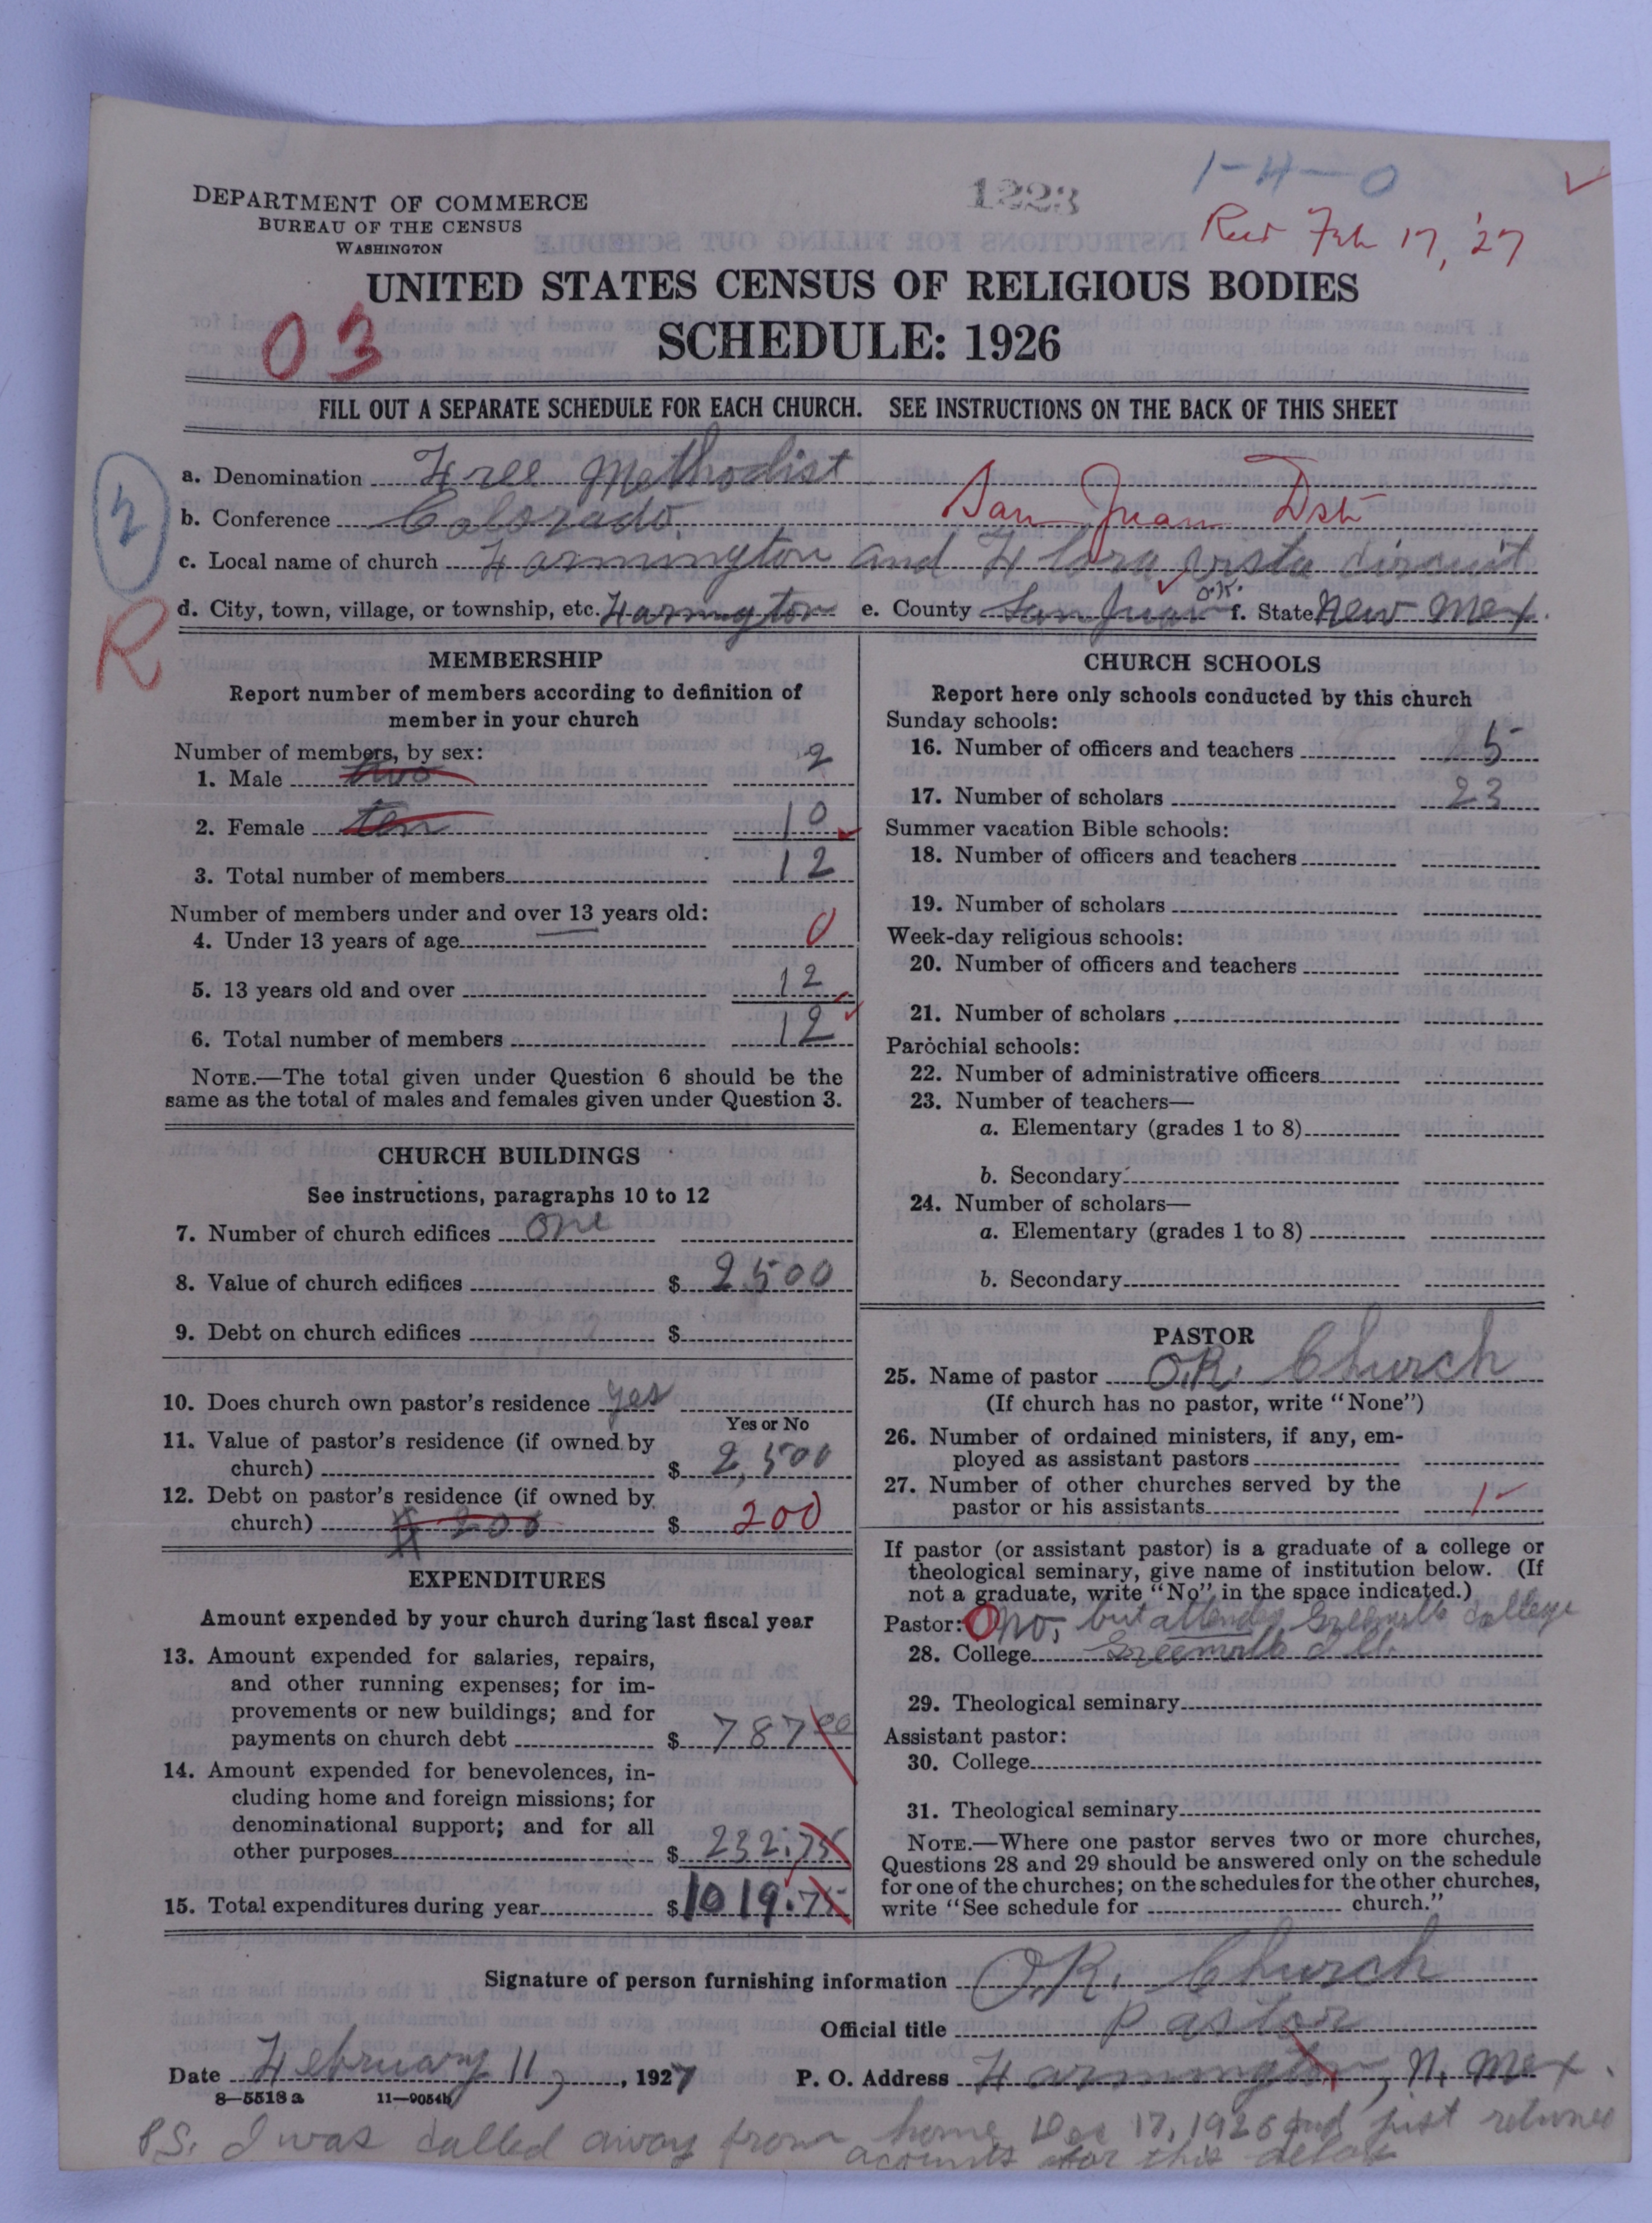 1-H-0
1223
DEPARTMENT OF COMMERCE
BUREAU OF THE CENSUS
WASHINGTON
Feb 17, '27
UNITED STATES CENSUS OF RELIGIOUS BODIES
03
SCHEDULE: 1926
FILL OUT A SEPARATE SCHEDULE FOR EACH CHURCH. SEE INSTRUCTIONS ON THE BACK OF THIS SHEET
2
a. Denomination Free Methodist
b. Conference Colorado San Juan Dst
c. Local name of church Farmington and Flora Vista circuit
R
d. City, town, village, or township, etc. Farmington e. County San Juan O.K. f. State New Mex.
MEMBERSHIP
Report number of members according to definition of
member in your church
Number of members, by sex:
1. Male two 2
2. Female ten 10
3. Total number of members 12
Number of members under and over 13 years old:
4. Under 13 years of age 0
5. 13 years old and over 12
6. Total number of members 12
NOTE.—The total given under Question 6 should be the
same as the total of males and females given under Question 3.
CHURCH BUILDINGS
See instructions, paragraphs 10 to 12
7. Number of church edifices one
8. Value of church edifices $ 2500
9. Debt on church edifices $
10. Does church own pastor's residence yes
Yes or No
11. Value of pastor's residence (if owned by
church) $ 2,500
12. Debt on pastor's residence (if owned by
church) $ 200 $ 200
EXPENDITURES
Amount expended by your church during last fiscal year
13. Amount expended for salaries, repairs,
and other running expenses; for im-
provements or new buildings; and for
payments on church debt $ 787 00
14. Amount expended for benevolences, in-
cluding home and foreign missions; for
denominational support; and for all
other purposes $ 232.75
15. Total expenditures during year $ 1019.75
CHURCH SCHOOLS
Report here only schools conducted by this church
Sunday schools:
16. Number of officers and teachers 5
17. Number of scholars 23
Summer vacation Bible schools:
18. Number of officers and teachers
19. Number of scholars
Week-day religious schools:
20. Number of officers and teachers
21. Number of scholars
Parochial schools:
22. Number of administrative officers
23. Number of teachers—
a. Elementary (grades 1 to 8)
b. Secondary
24. Number of scholars—
a. Elementary (grades 1 to 8)
b. Secondary
PASTOR
25. Name of pastor O.R. Church
(If church has no pastor, write "None")
26. Number of ordained ministers, if any, em-
ployed as assistant pastors
27. Number of other churches served by the
pastor or his assistants 1
If pastor (or assistant pastor) is a graduate of a college or
theological seminary, give name of institution below. (If
not a graduate, write "No" in the space indicated.)
Pastor: 0 no, but attended Greenville College
28. College Greenville Ill.
29. Theological seminary
Assistant pastor:
30. College
31. Theological seminary
NOTE.—Where one pastor serves two or more churches,
Questions 28 and 29 should be answered only on the schedule
for one of the churches; on the schedules for the other churches,
write "See schedule for church."
Signature of person furnishing information O.R. Church
Official title pastor
Date February 11, 1927 P. O. Address Farmington, N. Mex.
8—5518 a 11—9054b
P.S. I was called away from home Dec 17, 1926 and just returned
accounts for this delay